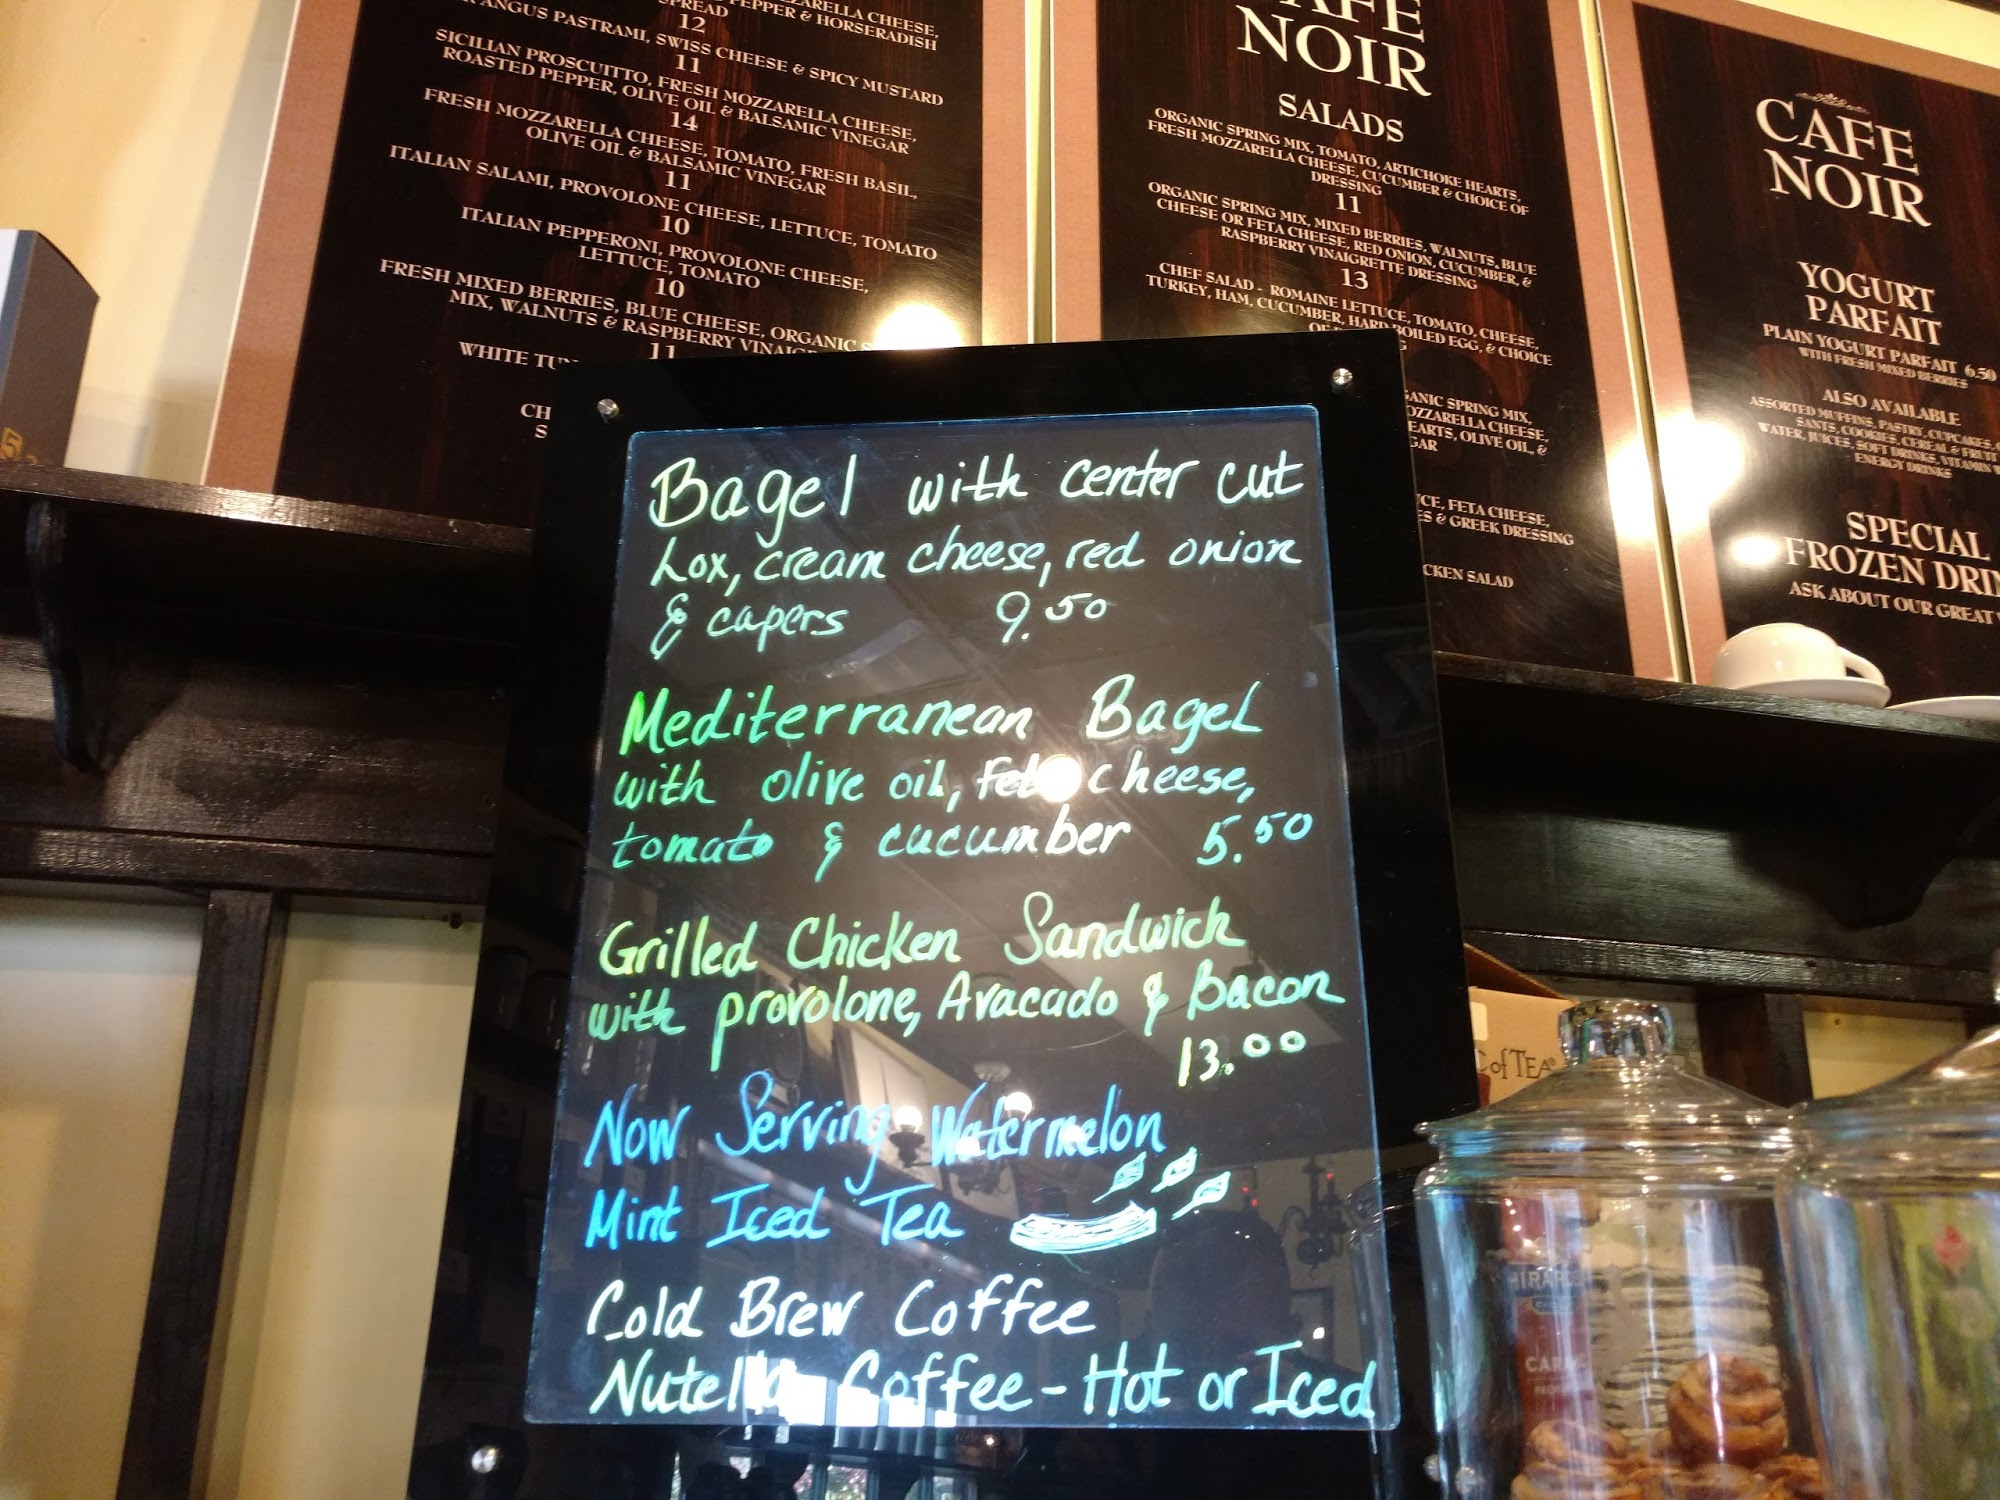 MOZZARELLA CHEESE,
PEPPER & HORSERADISH
SPREAD
12
ANGUS PASTRAMI, SWISS CHEESE & SPICY MUSTARD
11
SICILIAN PROSCUITTO, FRESH MOZZARELLA CHEESE,
ROASTED PEPPER, OLIVE OIL & BALSAMIC VINEGAR
14
FRESH MOZZARELLA CHEESE, TOMATO, FRESH BASIL,
OLIVE OIL & BALSAMIC VINEGAR
11
ITALIAN SALAMI, PROVOLONE CHEESE, LETTUCE, TOMATO
10
ITALIAN PEPPERONI, PROVOLONE CHEESE,
LETTUCE, TOMATO
10
FRESH MIXED BERRIES, BLUE CHEESE, ORGANIC
MIX, WALNUTS & RASPBERRY
11
WHITE
CAFE
NOIR
SALADS
ORGANIC SPRING MIX, TOMATO, ARTICHOKE HEARTS,
FRESH MOZZARELLA CHEESE, CUCUMBER & CHOICE OF
DRESSING
11
ORGANIC SPRING MIX, MIXED BERRIES, WALNUTS, BLUE
CHEESE OR FETA CHEESE, RED ONION, CUCUMBER, &
RASPBERRY VINAIGRETTE DRESSING
13
CHEF SALAD - ROMAINE LETTUCE, TOMATO, CHEESE,
TURKEY, HAM, CUCUMBER, HARD BOILED EGG, & CHOICE
OF
SPRING MIX,
MOZZARELLA CHEESE,
HEARTS, OLIVE OIL, &
FETA CHEESE,
& GREEK DRESSING
SALAD
CAFE
NOIR
YOGURT
PARFAIT
PLAIN YOGURT PARFAIT 6.50
WITH FRESH MIXED BERRIES
ALSO AVAILABLE
ASSORTED MUFFINS, PASTRY, CUPCAKES,
COOKIES, CEREAL & FRUIT
WATER, JUICES, SOFT DRINKS, VITAMIN
ENERGY DRINKS
SPECIAL
FROZEN
ASK ABOUT OUR GREAT
Bagel with center cut
Lox, cream cheese, red onion
& capers 9.50
Mediterranean Bagel
with olive oil, feta cheese,
tomato & cucumber 5.50
Grilled Chicken Sandwich
with provolone, Avacado & Bacon
13.00
Now Serving Watermelon
Mint Iced Tea
Cold Brew Coffee
Nutella Coffee - Hot or Iced
of TEA